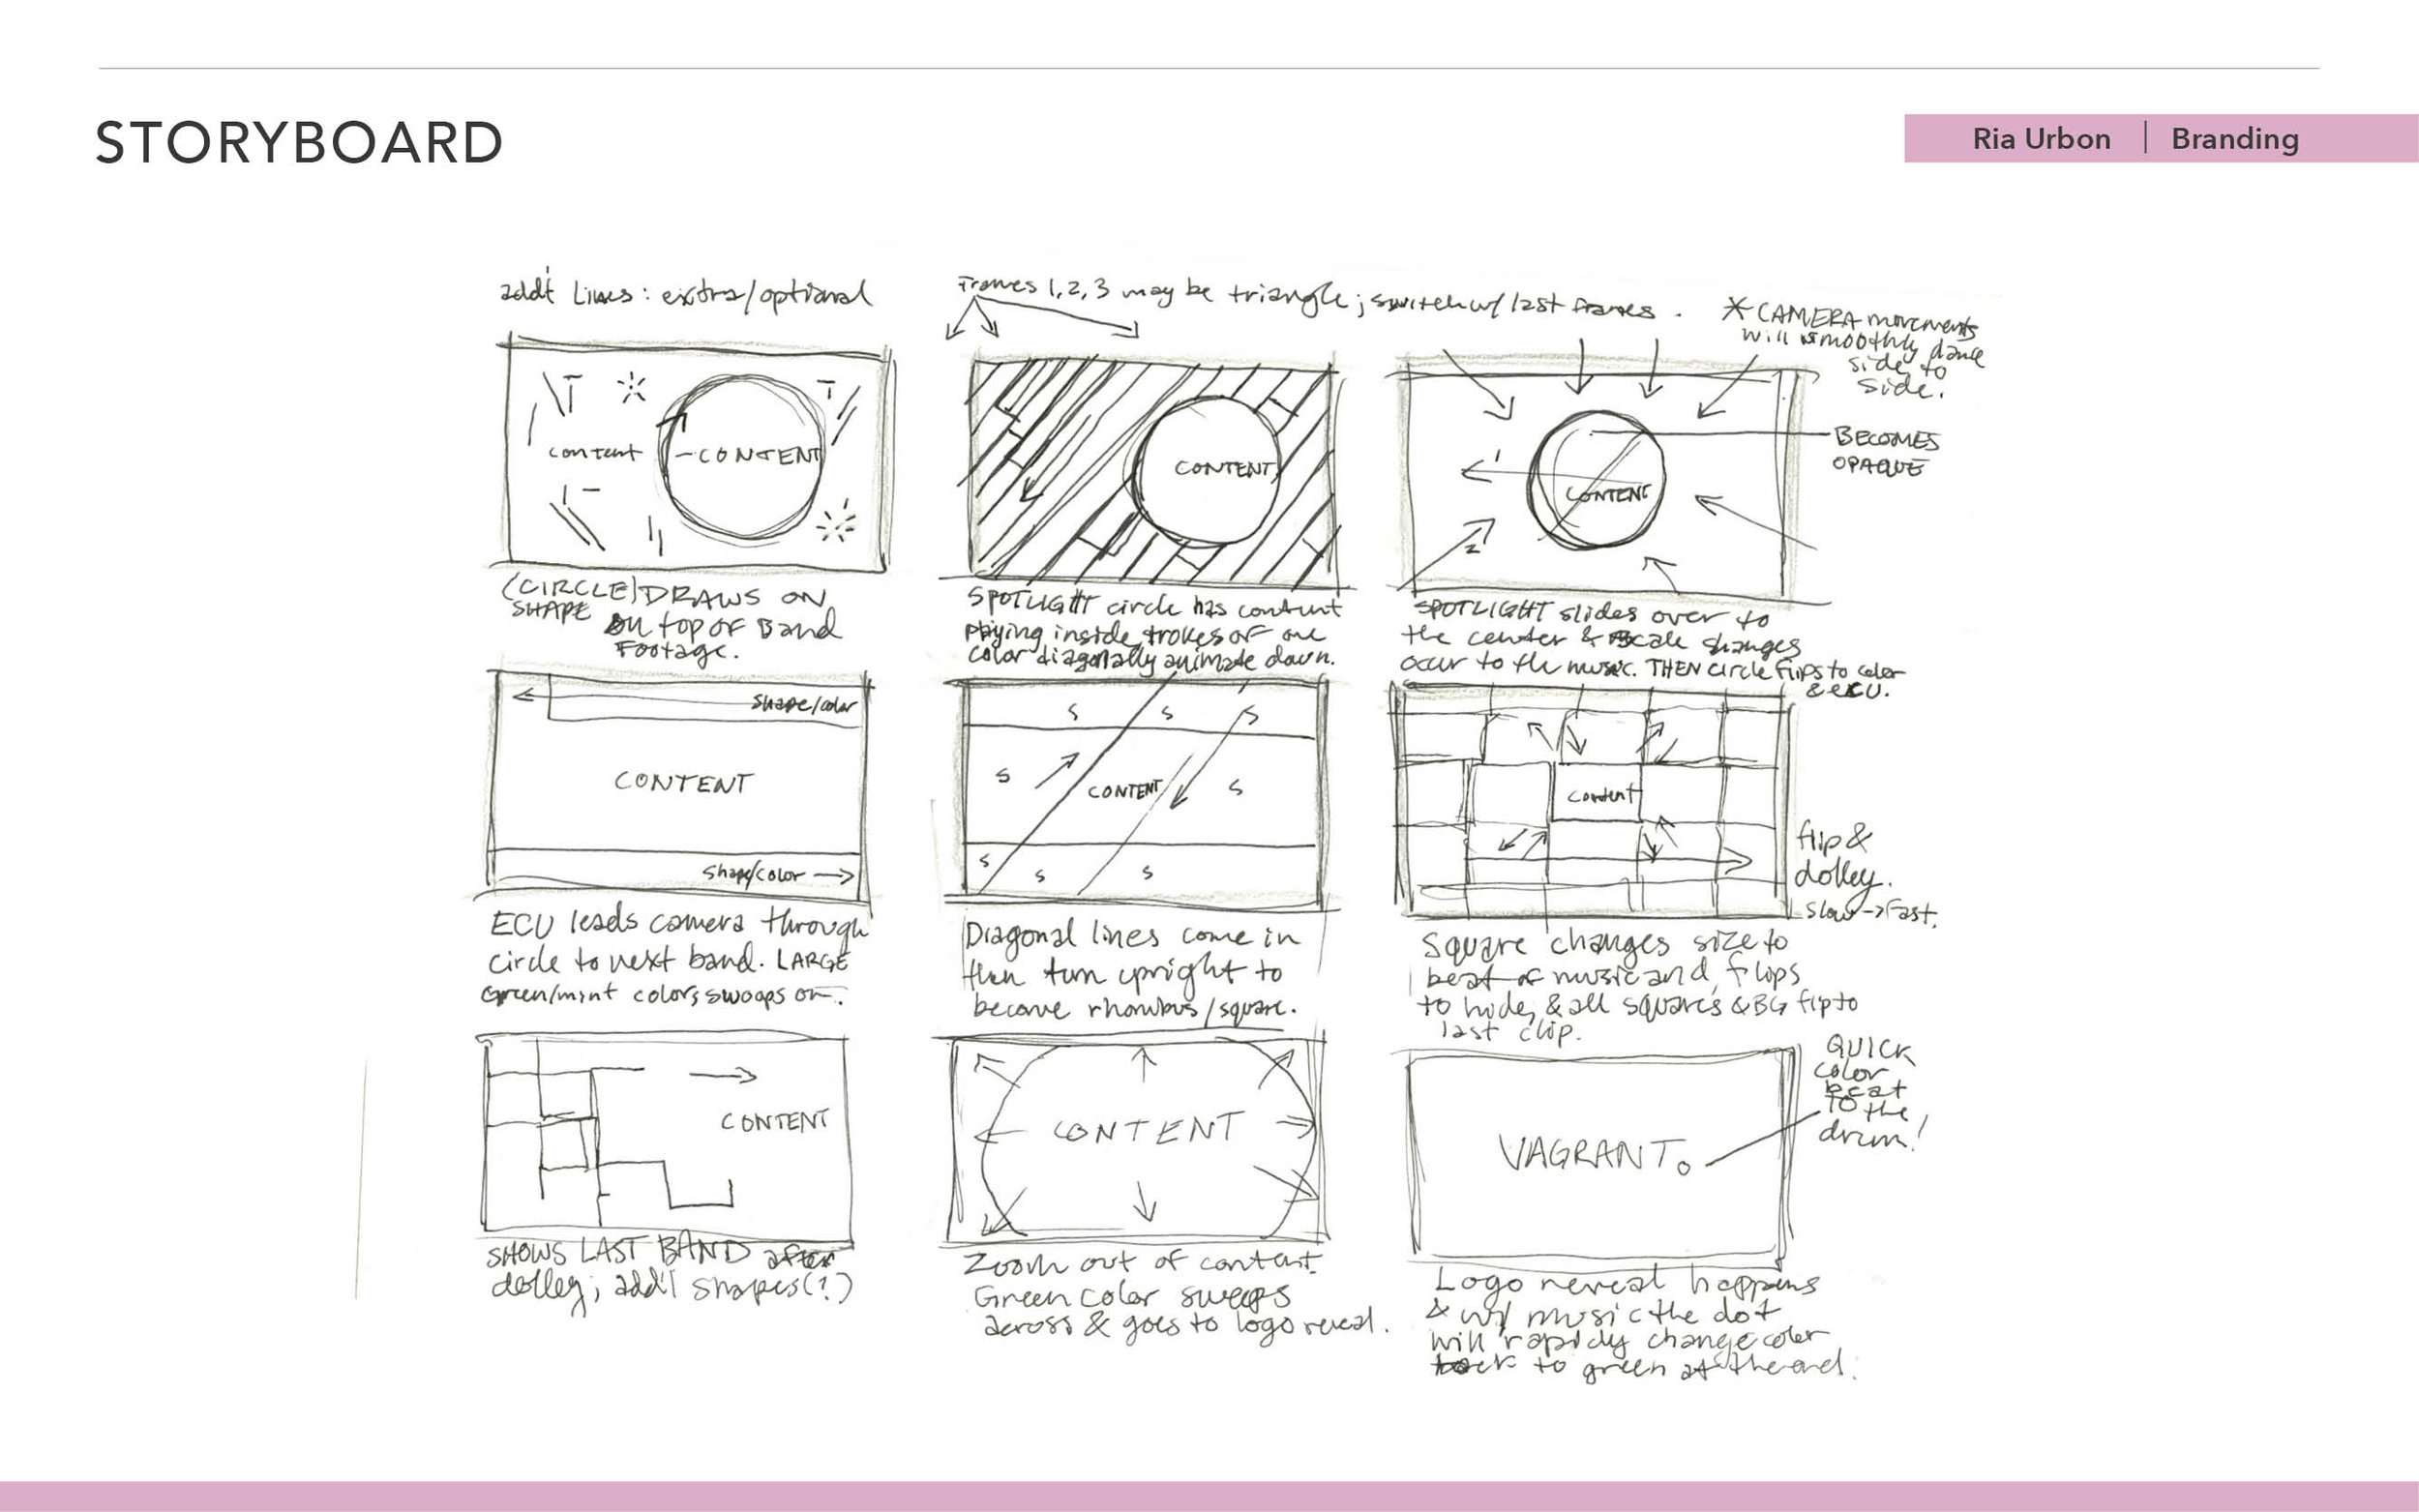 STORYBOARD
Ria Urbon | Branding
add'l Lines: extra/optional
Frames 1, 2, 3 may be triangle; switch w/ last frames.
* CAMERA movements
will smoothly dance
side to
side.
content
CONTENT
(CIRCLE) DRAWS ON
SHAPE on top of Band
Footage.
CONTENT
SPOTLIGHT circle has content
playing inside, strokes of one
color diagonally animate down.
CONTENT
BECOMES
OPAQUE
SPOTLIGHT slides over to
the center & scale changes
occur to the music. THEN circle flips to color
& ECU.
shape/color
CONTENT
shape/color
ECU leads camera through
circle to next band. LARGE
Green/mint colors swoops on.
S S S
S CONTENT S
S S S
Diagonal lines come in
then turn upright to
become rhombus/square.
content
flip &
dolley.
Slow -> Fast.
Square changes size to
beat of music and flops
to hide, & all squares & BG flip to
last clip.
CONTENT
SHOWS LAST BAND after
dolley; add'l shapes(?)
CONTENT
Zoom out of content.
Green color sweeps
across & goes to logo reveal.
VAGRANT.
QUICK
color
beat
TO the
drum!
Logo reveal happens
& w/ music the dot
will rapidly change color
back to green at the end.